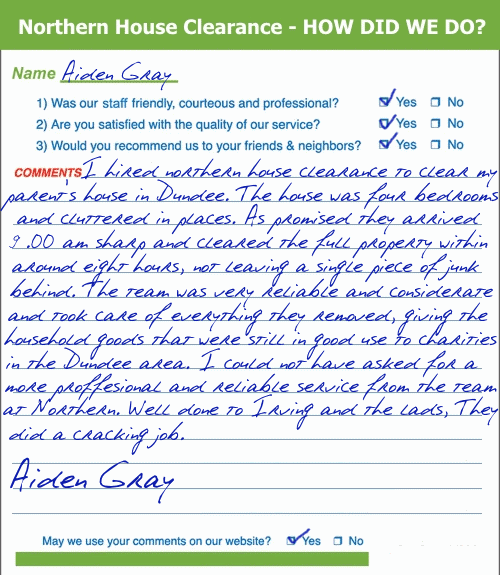 Northern House Clearance - HOW DID WE DO?
Name Aiden Gray
1) Was our staff friendly, courteous and professional? ☑ Yes ☐ No
2) Are you satisfied with the quality of our service? ☑ Yes ☐ No
3) Would you recommend us to your friends & neighbors? ☑ Yes ☐ No
COMMENTS I hired northern house clearance to clear my
parent's house in Dundee. The house was four bedrooms
and cluttered in places. As promised they arrived
9.00 am sharp and cleared the full property within
around eight hours, not leaving a single piece of junk
behind. The team was very reliable and considerate
and took care of everything they removed, giving the
household goods that were still in good use to charities
in the Dundee area. I could not have asked for a
more proffesional and reliable service from the team
at Northern. Well done to Irving and the lads, They
did a cracking job.
Aiden Gray
May we use your comments on our website? ☑ Yes ☐ No